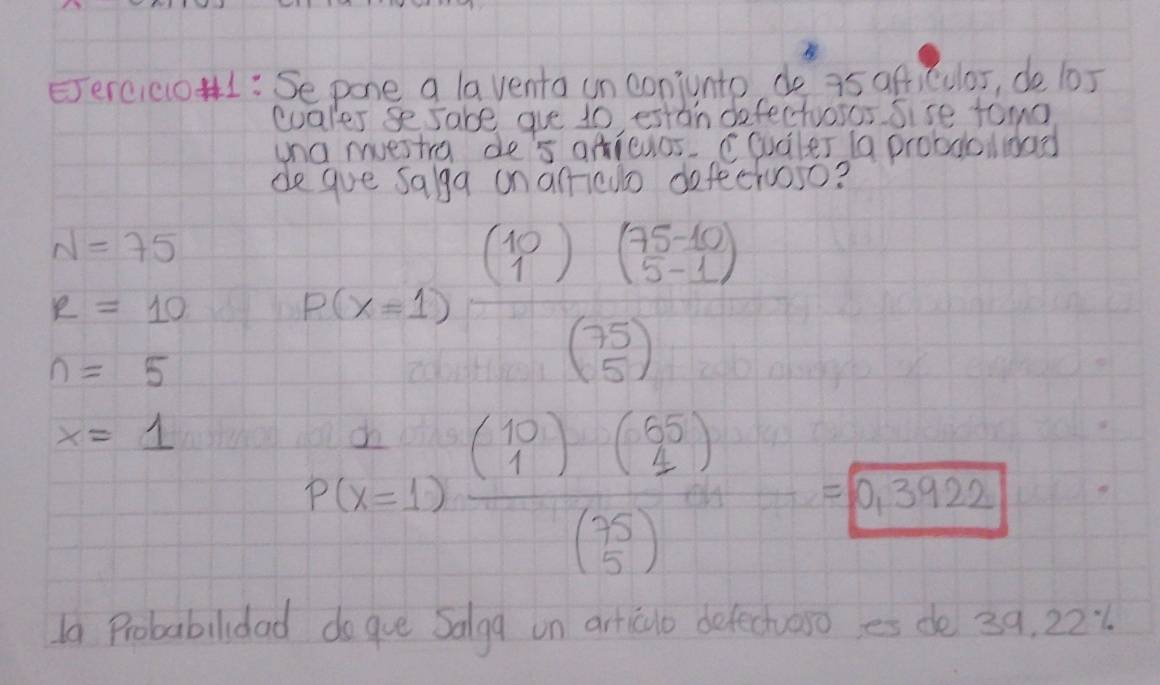 Ejercicio #1: Se pone a la venta un conjunto de 75 artículos, de los
cuales se sabe que 10 están defectuosos. Si se toma
una muestra de 5 artícuos. ¿Cuáles la probabilidad
de que salga un artículo defectuoso?
N = 75
R = 10
n = 5
x = 1
P(x=1) (10 1) (75-10 5-1)
(75 5)
P(x=1) (10 1) (65 4) = 0,3922
(75 5)
la Probabilidad de que Salga un artículo defectuoso es de 39.22%